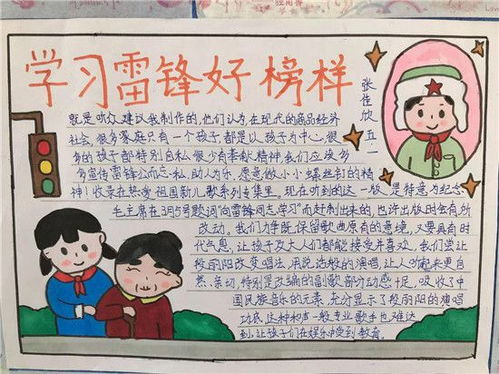 学习雷锋好榜样
张佳欣 五一
就是听众建议我制作的,他们认为在现代的商品经济
社会,很多家庭只有一个孩子,都是以孩子为中心,很
多的孩子都特别自私,很少有奉献精神,我们应该多
多宣传雷锋公而忘私,助人为乐,愿意做小小螺丝钉的精
神!收录在热爱祖国新儿歌系列专集里,现在听到的这一版,是特意为纪念
毛主席在3月5号题词"向雷锋同志学习"而赶制出来的,也许出版时会有所
改动,我们力争既保留歌曲原有的意境,又要具有时
代气息,让孩子及大人们都能接受并喜欢,我们尝让
阳改变唱法,用说话般的演唱,让人听起来更自
然,亲切,特别是改编的副歌部分动感十足,吸收了中
国民族音乐的元素,充分显示了阳的演唱
功底,这种和声一般专业歌手也难达
到,让孩子们在娱乐中受到教育。